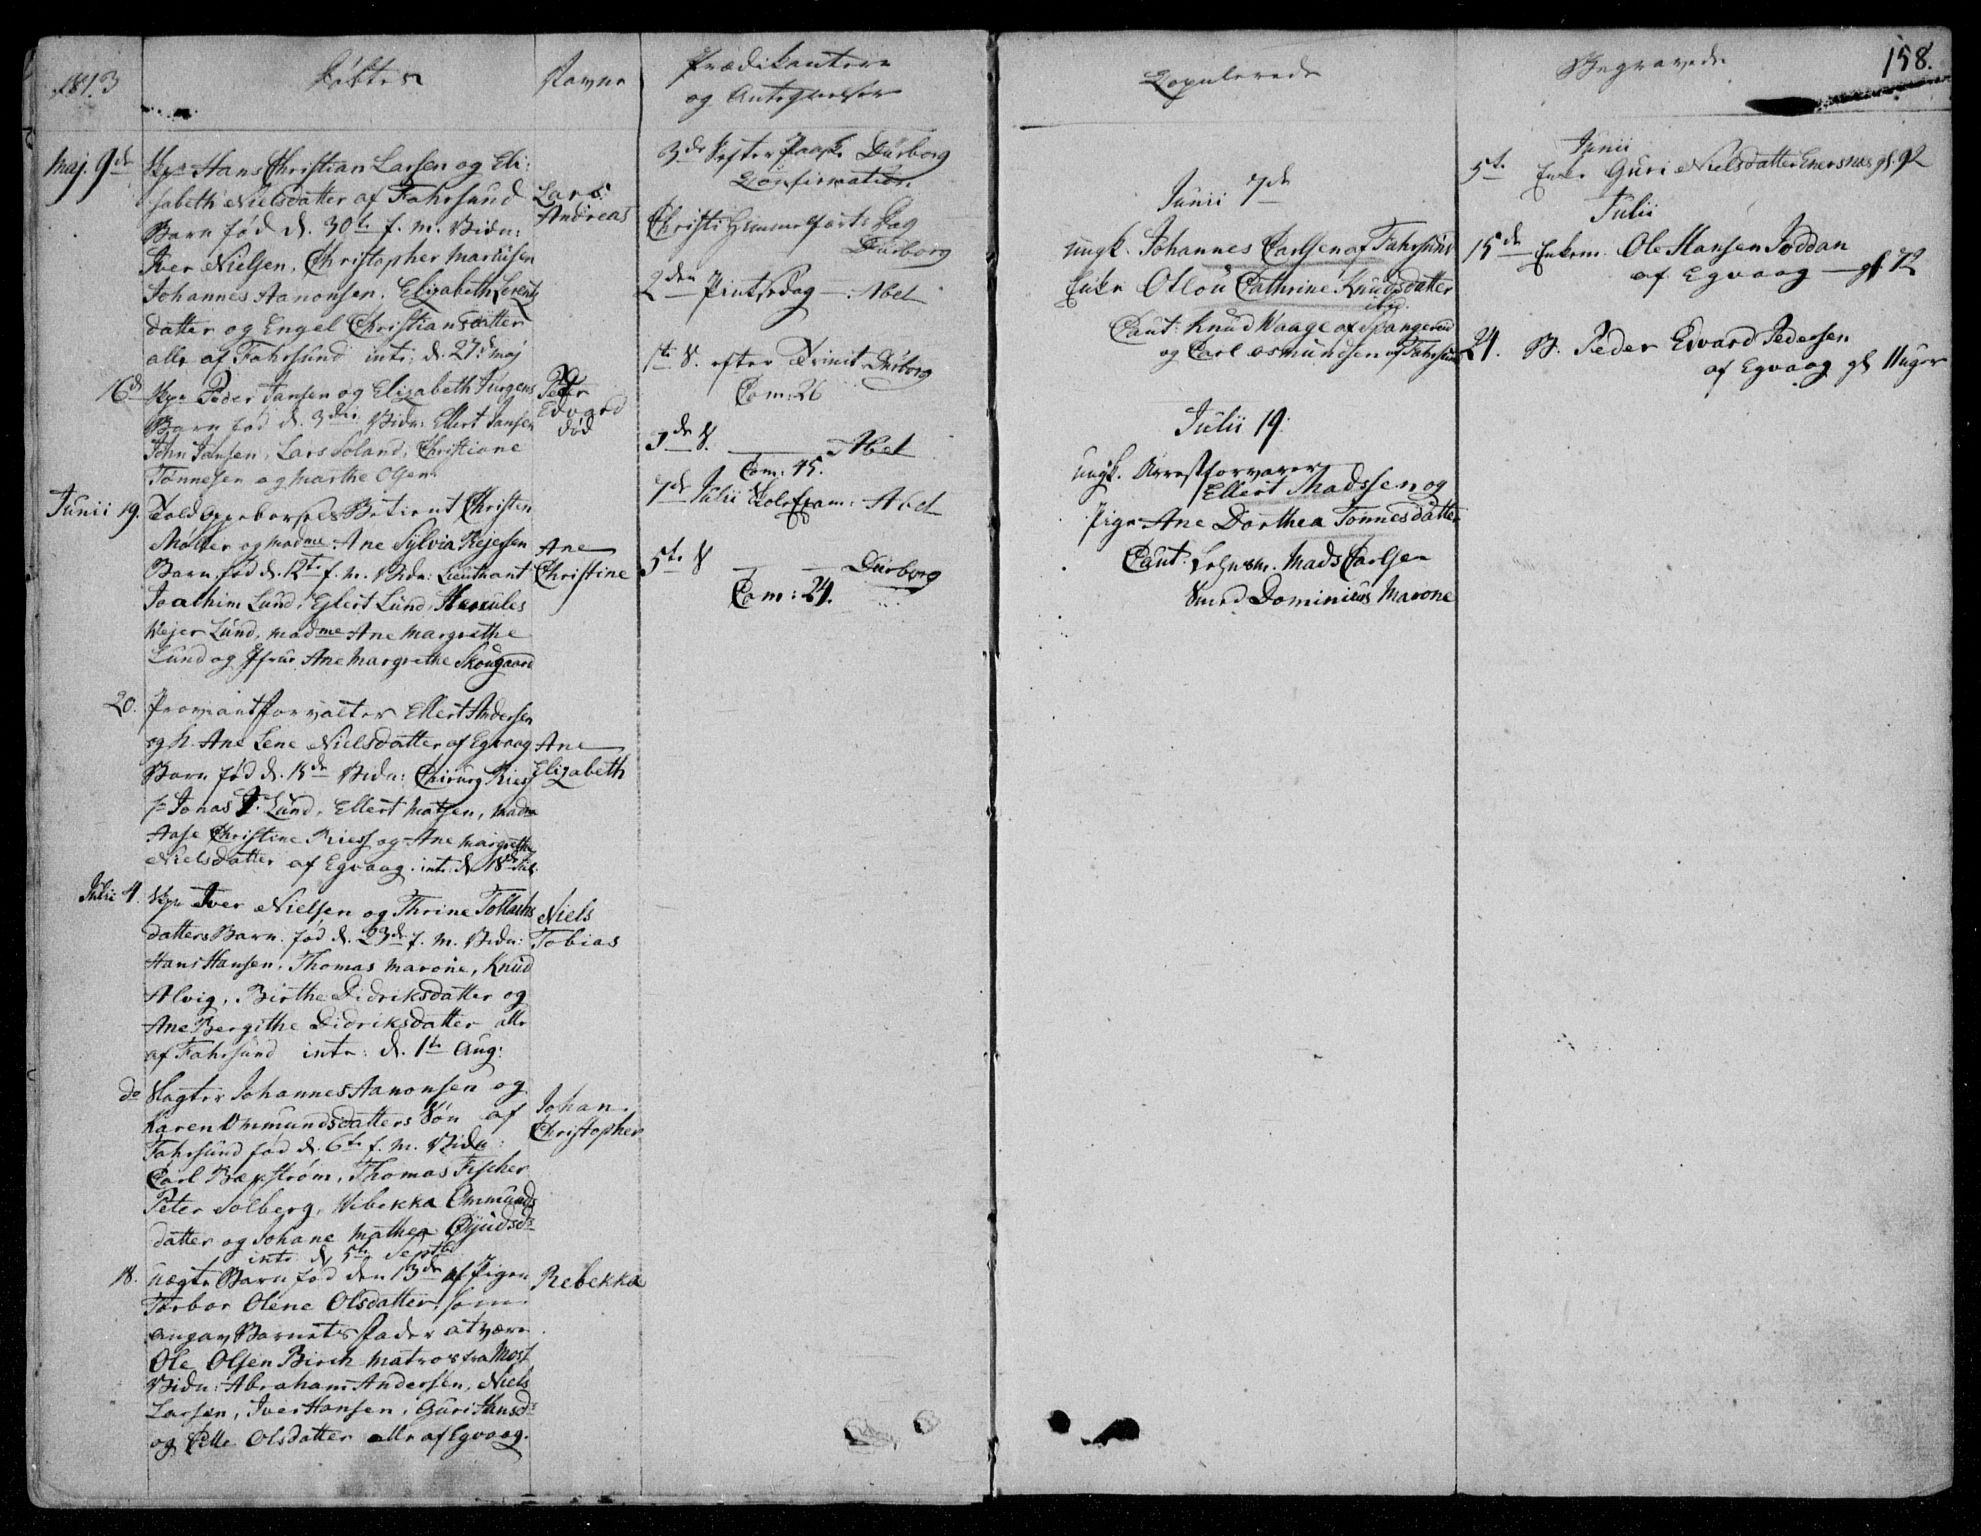 1813
Døbte
Navne
Prædikantere
og Antegnelser
Maj. 9de
Skpr Hans Christian Larsen og Eli:
sabeth Nielsdatter af Fahrsund
Barn fød d. 30te f. M. Vidn:
Iver Nielsen, Christopher Marcusen
Johannes Aanonsen, Elizabeth Lorentz
datter og Engel Christiansdatter
alle af Fahrsund intr: d. 27de Maj
Lars
Andreas
16de
Skpr Peder Jansen og Elizabeth Jürgens
Barn fød d. 3die Vidn: Ellert Jansen
John Jansen, Lars Soland, Christiane
Tønnesen og Marthe Olsen
Peder
Edvard
død
Junii 19.
Toldoppebørsels Betient Christen
Møller og Madme Ane Sylvia Rejersen
Barn fød d. 12te f. M. Vidn: Lieutnant
Joachim Lund, Eilert Lund, Hercules
Wejer Lund, Madme Ane Margrethe
Lund og Jfrue Ane Margrethe Skougaard
Ane
Christine
20.
Proviantforvalter Ellert Andersen
og H. Ane Lene Nielsdatter af Egvaag
Barn fød d. 15de Vidn: Chirurg Riess
Jonas J. Lund, Ellert Matsen, Madm
Aase Christine Riess og Ane Margrethe
Nielsdatter af Egvaag. intr: d. 18de Jul.
Ane
Elizabeth
Julii 4.
Skpr Iver Nielsen og Thrine Tollachs
datters Barn. fød d. 23de f. M. Vidn:
Hans Hansen, Thomas Marone, Knud
Alvig, Birthe Didriksdatter og
Ane Bergithe Didriksdatter alle
af Fahrsund intr: d. 1te Aug:
Niels
Tobias
do
Slagter Johannes Aanonsen og
Karen Ommundsdatters Søn af
Fahrsund fød d. 6te f. M. Vidn:
Carl Bexstrøm, Thomas Fischer
Peter Solberg, Wibekka Ommunds
datter og Johane Mathea
intr d. 5te Septbr
Johan
Christopher
18.
uægte Barn fød den 13de af Pigen
Torbor Olene Olsdatter, som
angav Barnets Fader at være
Ole Olsen Birch Matros fra Moss
Vidn: Abraham Andersen, Niels
Larsen, Iver Hansen, Guri Hansd:
og Olsdatter alle af Egvaag.
Rebekka
3de S. efter Paask. Dürborg
Confirmation
Christi Himmelfarts Dag
Dürborg
2den Pintsedag — Abel
1te S. efter Trinit. Dürborg
Com: 26
3de S. — Abel
Com: 45.
7de Julii Skole Exam: Abel
5te S — — Dürborg
Com: 24.
Copulerede
Junii 7de
Ungk. Johannes Carlsen af Fahrsund
Enke Otlou Cathrine Knudsdatter
ibid.
Caut: Knud Waage af Spangereid
og Carl Osmundsen af Fahrsund
Julii 19.
Ungk. Arrestforvarer
Ellert Madssen og
Pige Ane Dorthea Tønnesdatter
Caut: Lehnsm. Mads Carlsen
Smed Dominicus Marone
Begravede
158.
Junii
5te Enke Guri Nielsdatter Enersnes gl. 92
Julii
15de Enkem. Ole Hansen Joddan
af Egvaag — gl 72
24. B. Peder Edvard Pedersen
af Egvaag gl 11 uger